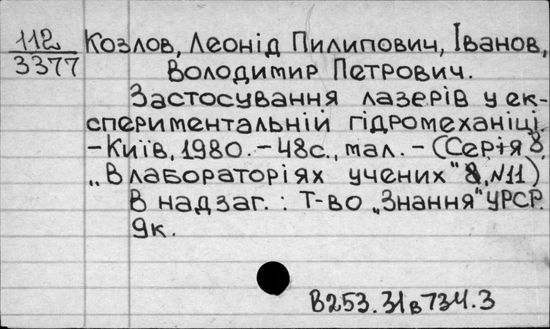 112
3377
Козлов, Леонід Пилипович, Іванов,
Володимир Петрович.
Застосування лазерів у ек-
спериментальній гідромеханіці.
- Київ, 1980. - 48с., мал. - (Серія 8,
„В лабораторіях учених" 8, №11)
В надзаг.: Т-во „Знання" УРСР.
9к.
В253.31в734.3